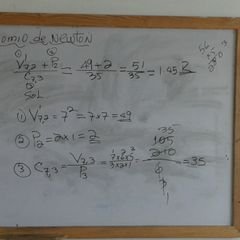 OMIO de NEWTON
① ②
V'7,2 + P2 / C7,3 = 49+2 / 35 = 51 / 35 = 1.45
③
SOL
① V'7,2 = 7² = 7x7 = 49
② P2 = 2x1 = 2
③ C7,3 = V7,3 / P3 = 7x6x5 / 3x2x1 = 210 / 6 = 35
35
105